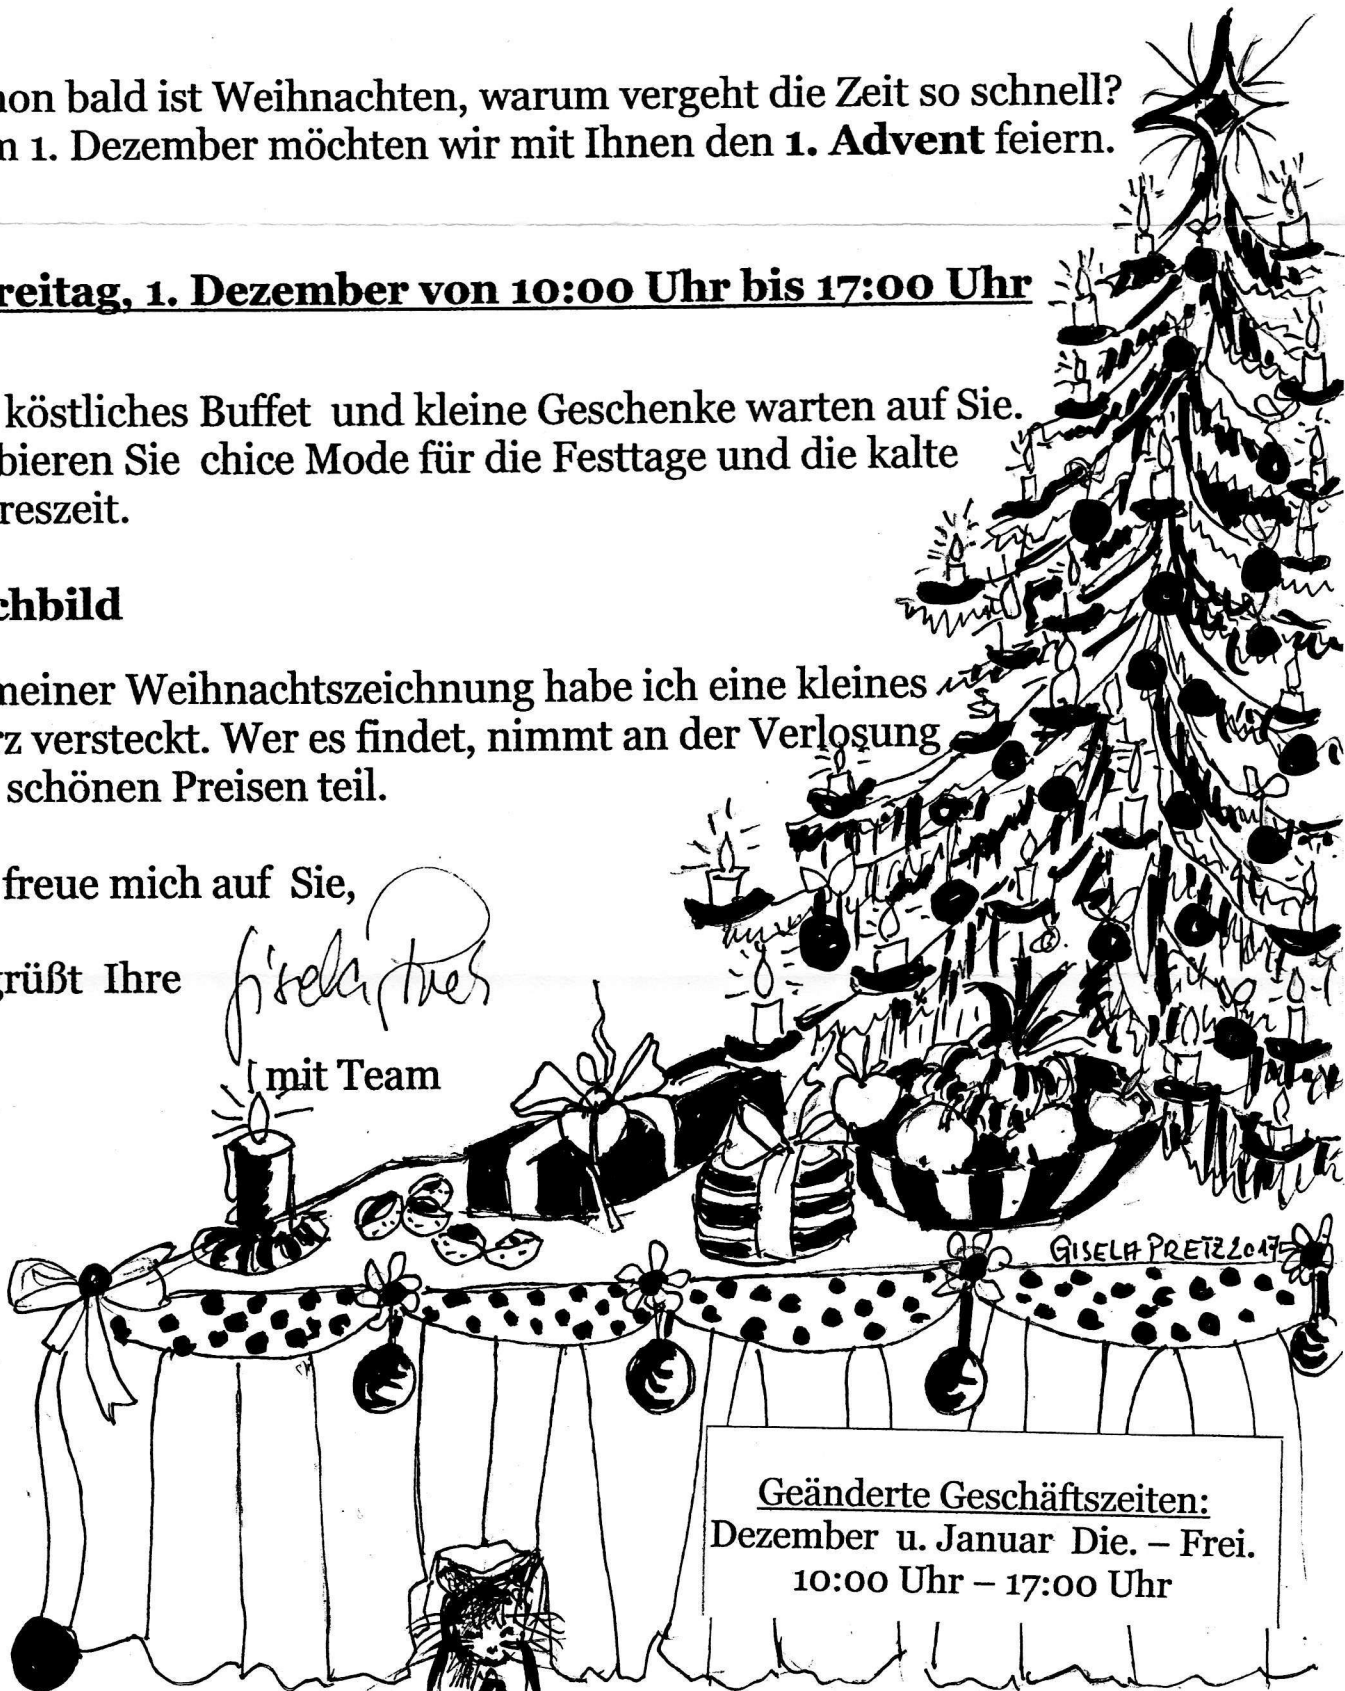 hon bald ist Weihnachten, warum vergeht die Zeit so schnell?
n 1. Dezember möchten wir mit Ihnen den 1. Advent feiern.
reitag, 1. Dezember von 10:00 Uhr bis 17:00 Uhr
köstliches Buffet und kleine Geschenke warten auf Sie.
bieren Sie chice Mode für die Festtage und die kalte
reszeit.
chbild
neiner Weihnachtszeichnung habe ich eine kleines
rz versteckt. Wer es findet, nimmt an der Verlosung
schönen Preisen teil.
freue mich auf Sie,
grüßt Ihre Gisela
mit Team
GISELA PRETZ 2017
Geänderte Geschäftszeiten:
Dezember u. Januar Die. – Frei.
10:00 Uhr – 17:00 Uhr